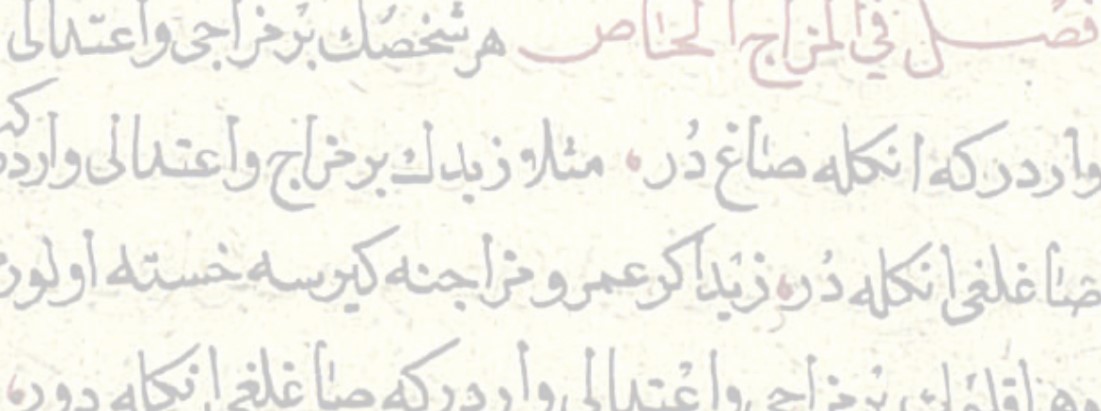 فصل في المزاج الخاص هر شخصك بر مزاجى واعتدالى
واردر كه انكله صاغ در مثلا زيدك بر مزاج واعتدالى وارد
صاغلغى انكله در زيد اكر عمرو مزاجنه كيرسه خسته اولور
وهر اقليمك بر مزاجى واعتدالى واردر كه صاغلغى انكله دور